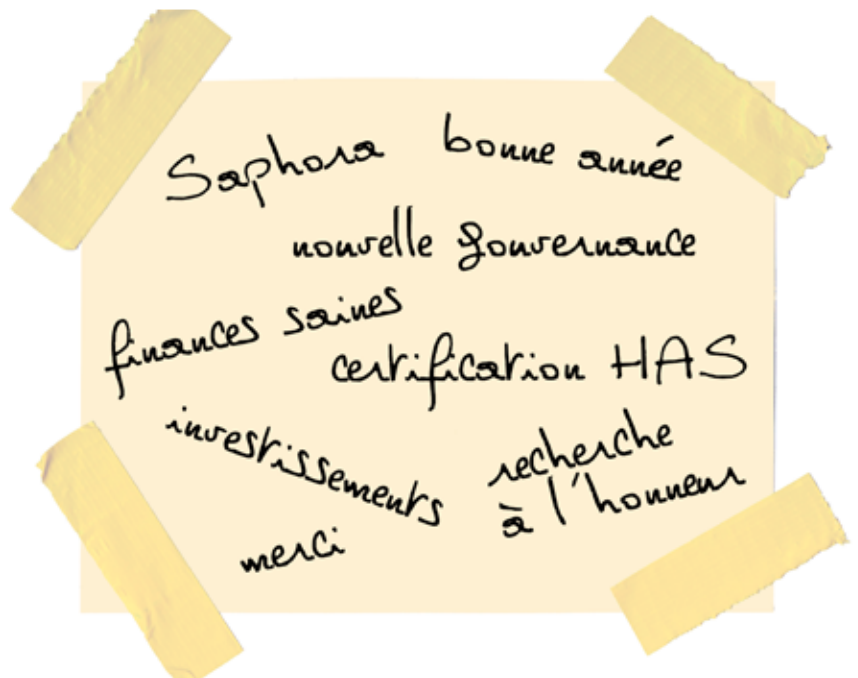 Saphora bonne année
nouvelle gouvernance
finances saines
certification HAS
investissements
recherche
à l'honneur
merci